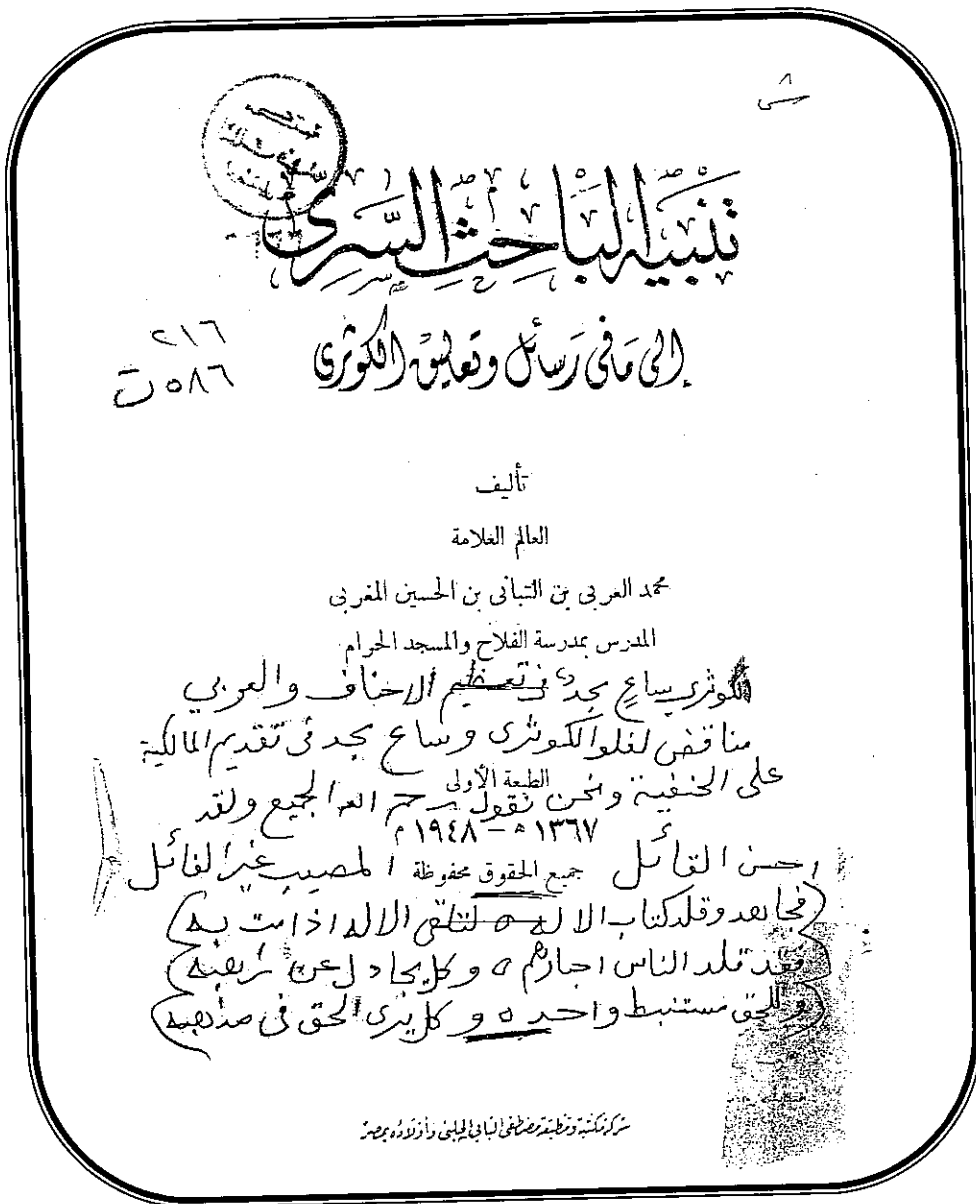 تنبيه الباحث السرى
إلى ما فى رسائل وتعاليق الكوثرى
٢١٦
٥٨٦ ت
تأليف
العالم العلامة
محمد العربى بن التبانى بن الحسين المغربى
المدرس بمدرسة الفلاح والمسجد الحرام
الكوثري ساعٍ بجد في تعظيم الاحناف والعربي
مناقض لغلو الكوثرى وساع بجد فى تقديم المالكية
على الحنفية ونحن نقول رحم الله الجميع ولقد
الطبعة الأولى
١٣٦٧ ه - ١٩٤٨ م
احسن القائل المصيب غير الفائل
جميع الحقوق محفوظة
فجاهد وقلد كتاب الاله ه لتلقى الاله اذا مت به
فقد قلد الناس احبارهم ه وكل يجادل عن راهبه
وللحق مستنبط واحد ه وكل يرى الحق فى مذهبه
شركة مكتبة ومطبعة مصطفى البابى الحلبى وأولاده بمصر